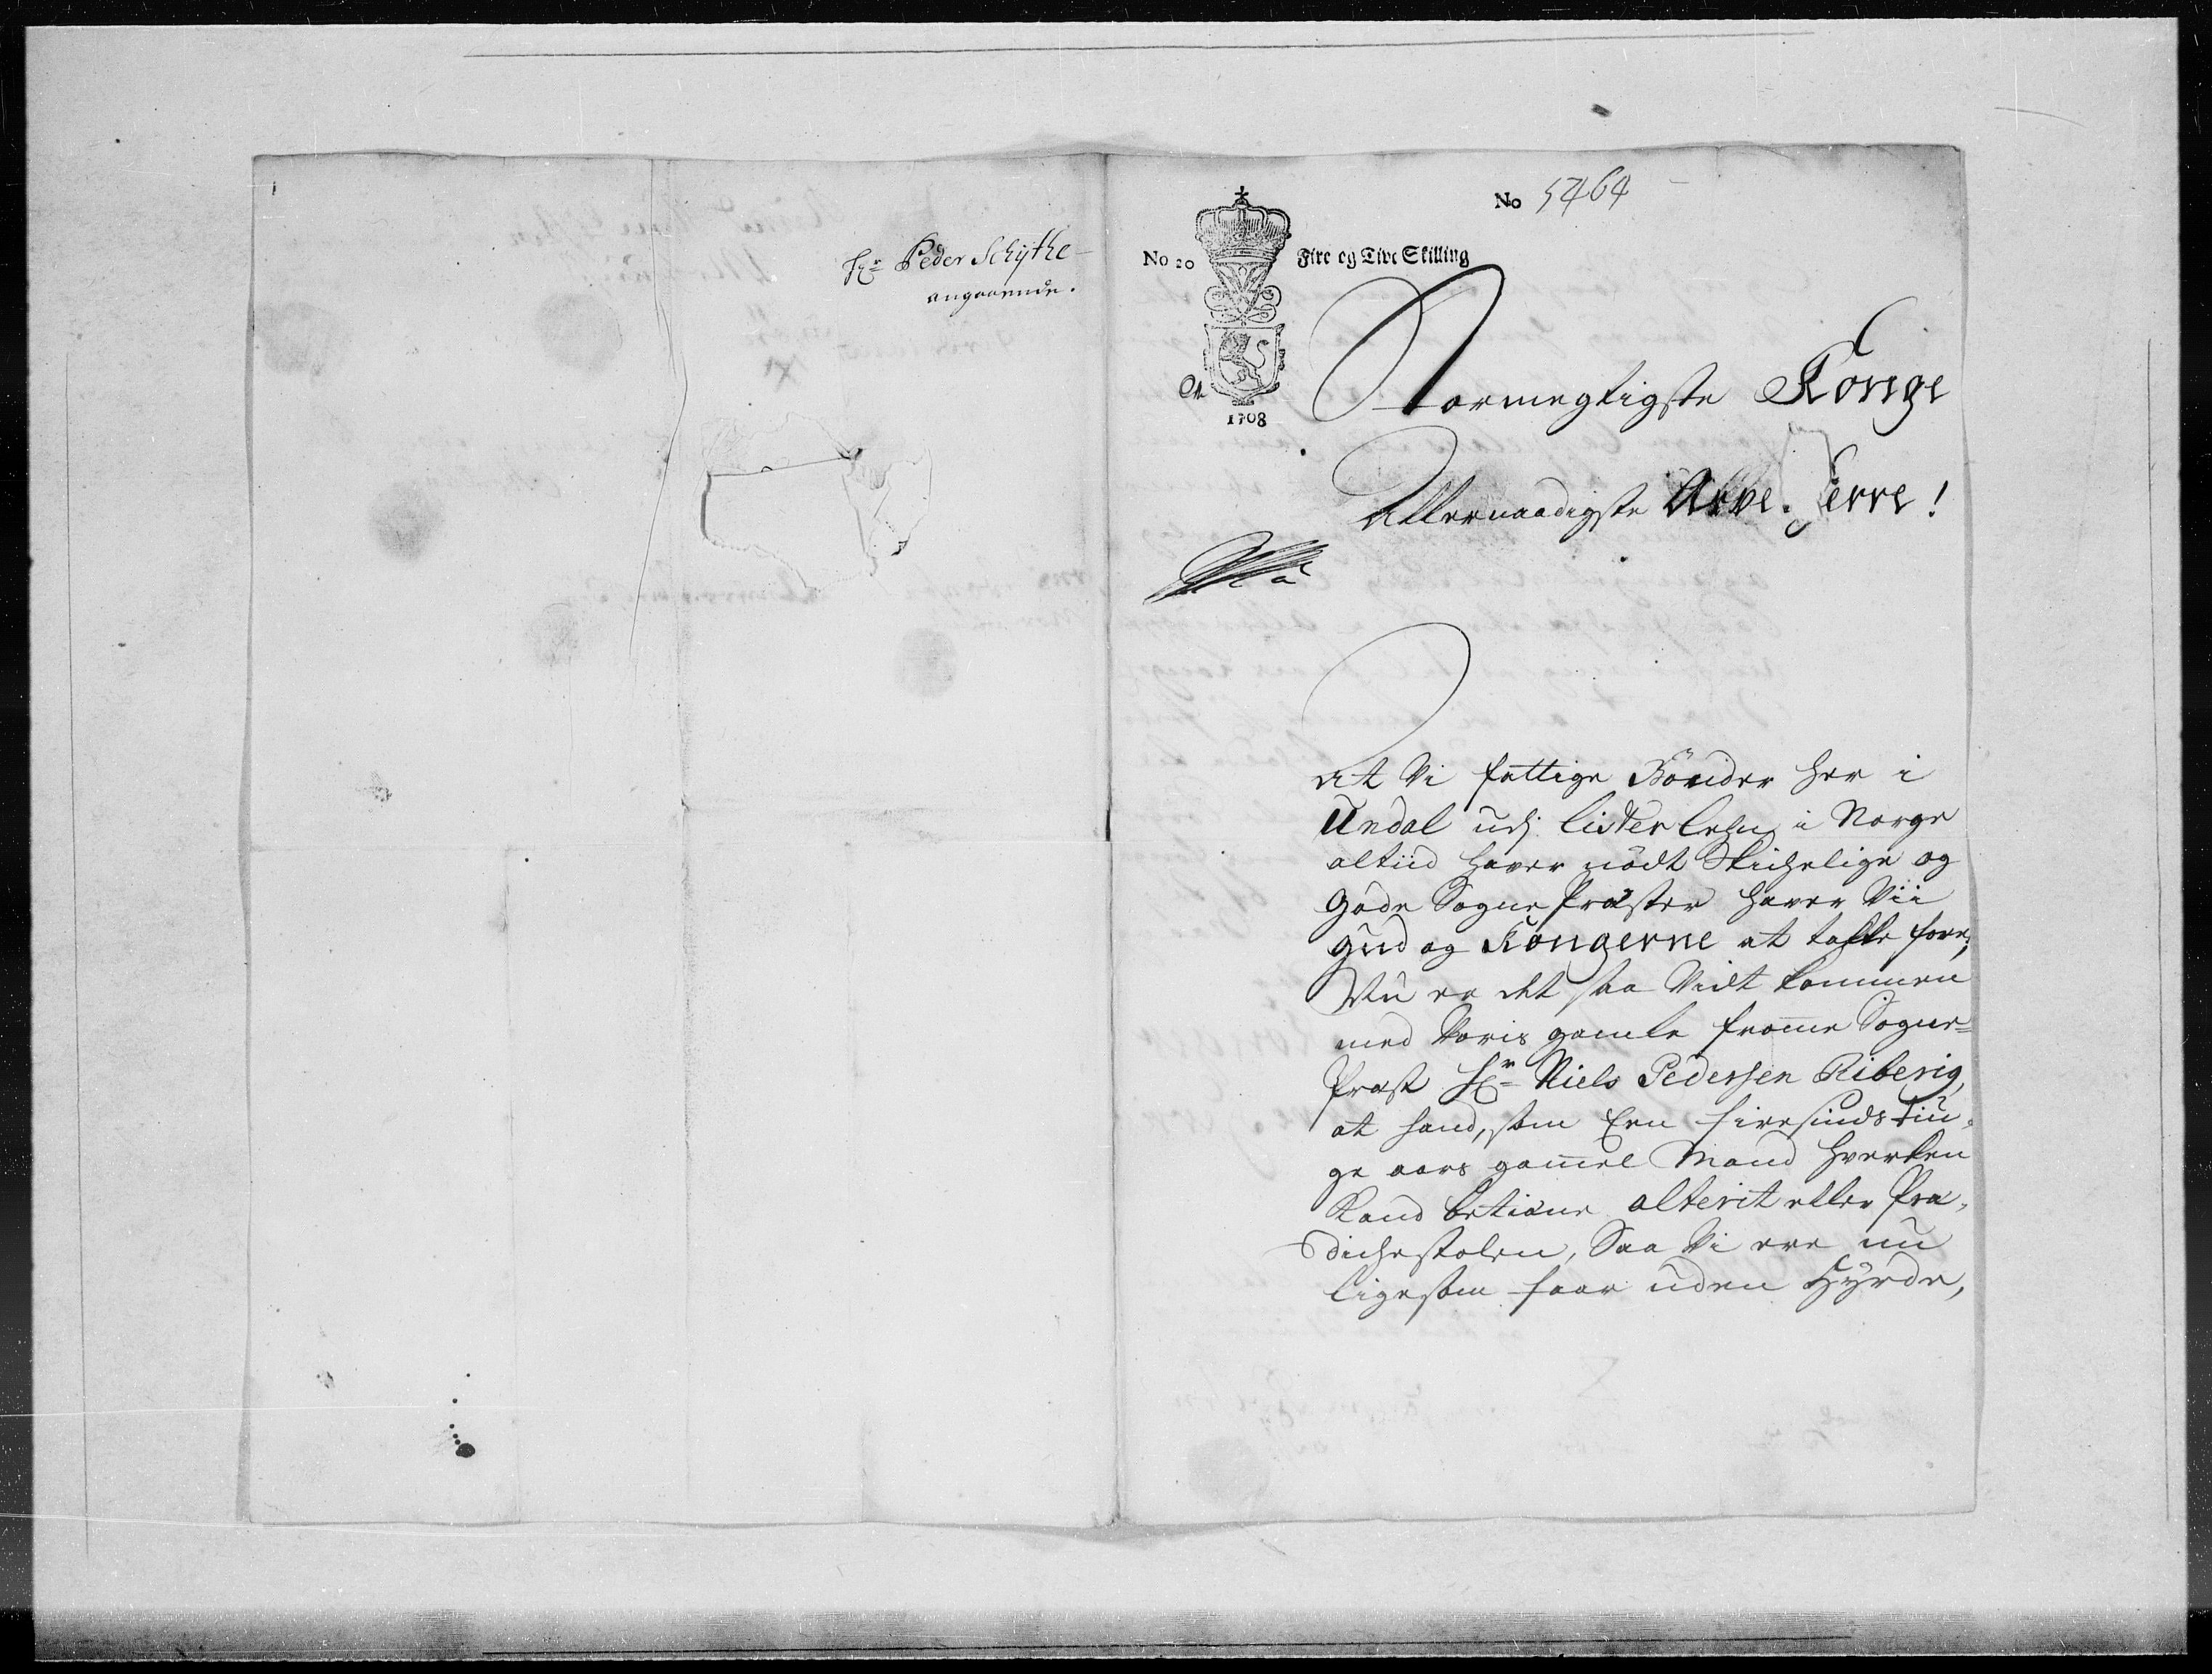 Hr Peder Schythe
angaaende.
No 5464
No 20
Fire og Tive Skilling
1708
Stormegtigste Konge
Allernaadigste Arve-Herre!
At Vi fattige Bönder her i
Undal udj Lister Lehn i Norge
altiid haver nödt Skichelige og
gode Sogne Præster haver Vii
Gud og Kongerne at takke fore,
Nu er det saa Vidt kommen
med Voris gamle fromme Sogne=
Præst Hr Niels Pedersen Riberig,
at hand, som Een firesindstiu-
ge aars gammel Mand hverken
Kand betiene alterit eller Præ-
dichestolen, Saa Vi ere nu
ligesom faar uden Hyrde,